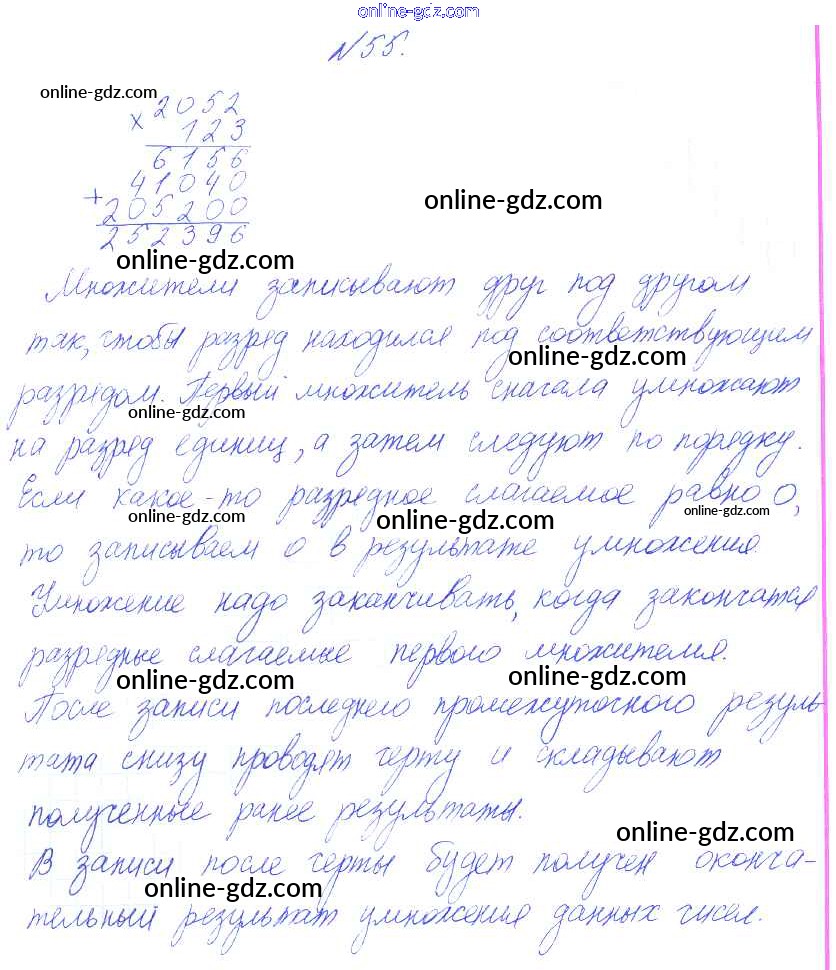 online-gdz.com
№55.
online-gdz.com
× 2052
123
6156
+ 41040
205200
252396
online-gdz.com
online-gdz.com
Множители записывают друг под другом
так, чтобы разряд находился под соответствующим
online-gdz.com
разрядом. Первый множитель сначала умножают
online-gdz.com
на разряд единиц, а затем следуют по порядку.
Если какое-то разрядное слагаемое равно 0,
online-gdz.com
online-gdz.com
online-gdz.com
то записываем 0 в результате умножения.
Умножение надо заканчивать, когда закончатся
разрядные слагаемые первого множителя.
online-gdz.com
online-gdz.com
После записи последнего промежуточного резуль-
тата снизу проводят черту и складывают
полученные ранее результаты.
online-gdz.com
В записи после черты будет получен оконча-
online-gdz.com
тельный результат умножения данных чисел.